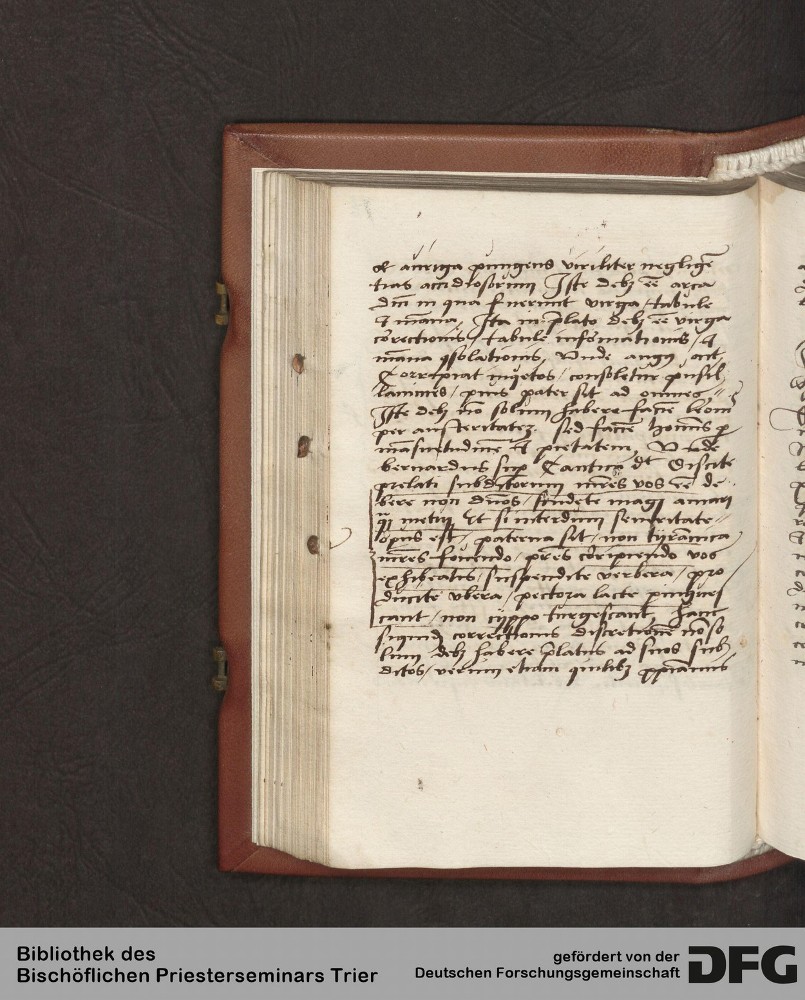 & auriga pungens viriliter negligē
tias accidiosorum Iste debz eē arca
dnī in qua fuerunt virga / tabule
et manna, Ita in p̄lato debz eē virga
correctionis / tabule informationis / et
manna ɔsolationis, Vnde
Corripiat inq̇etos / consoletur pusil
lanimes / pius pater sit ad omnes
Iste debz nō solum habere faciē leoni
per austeritatez sed faciē hominis p
mansuetudinē et pietatem, Vnde
bernardus sup Cantica dt Discite
prelati subditorum mr̄es vos eē de
bere non dnōs / studete magis amari
qͣ metui Et si interdum seueritate
opus est / paterna sit / non tyrannica
mr̄es fouendo / pr̄es corripiendo vos
exhibeatis / suspendite verbera / pro
ducite vbera / pectora lacte pingues
cant / non typo turgescant Hanc
siquidē correctionis discretionē nō so
lum debz habere p̄latus ad suos sub
ditos / verum etiam quilibz xpianus
Bibliothek des
Bischöflichen Priesterseminars Trier
gefördert von der
Deutschen Forschungsgemeinschaft
DFG